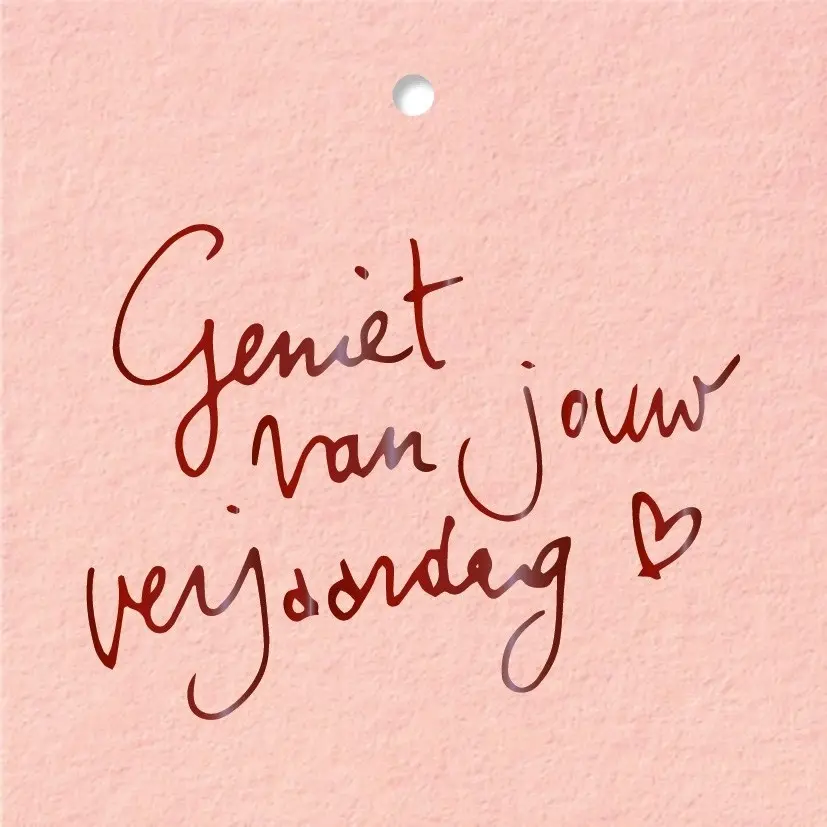 Geniet
van jouw
verjaardag